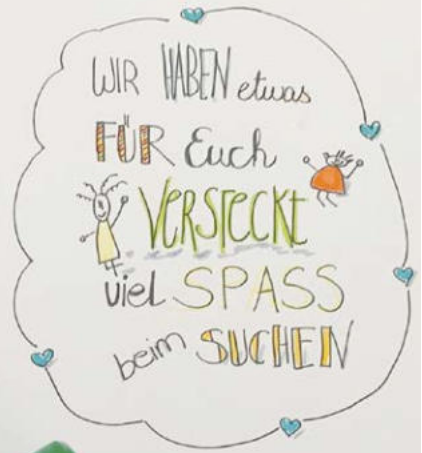 WIR HABEN etwas
FÜR Euch
VERSTECKT
viel SPASS
beim SUCHEN